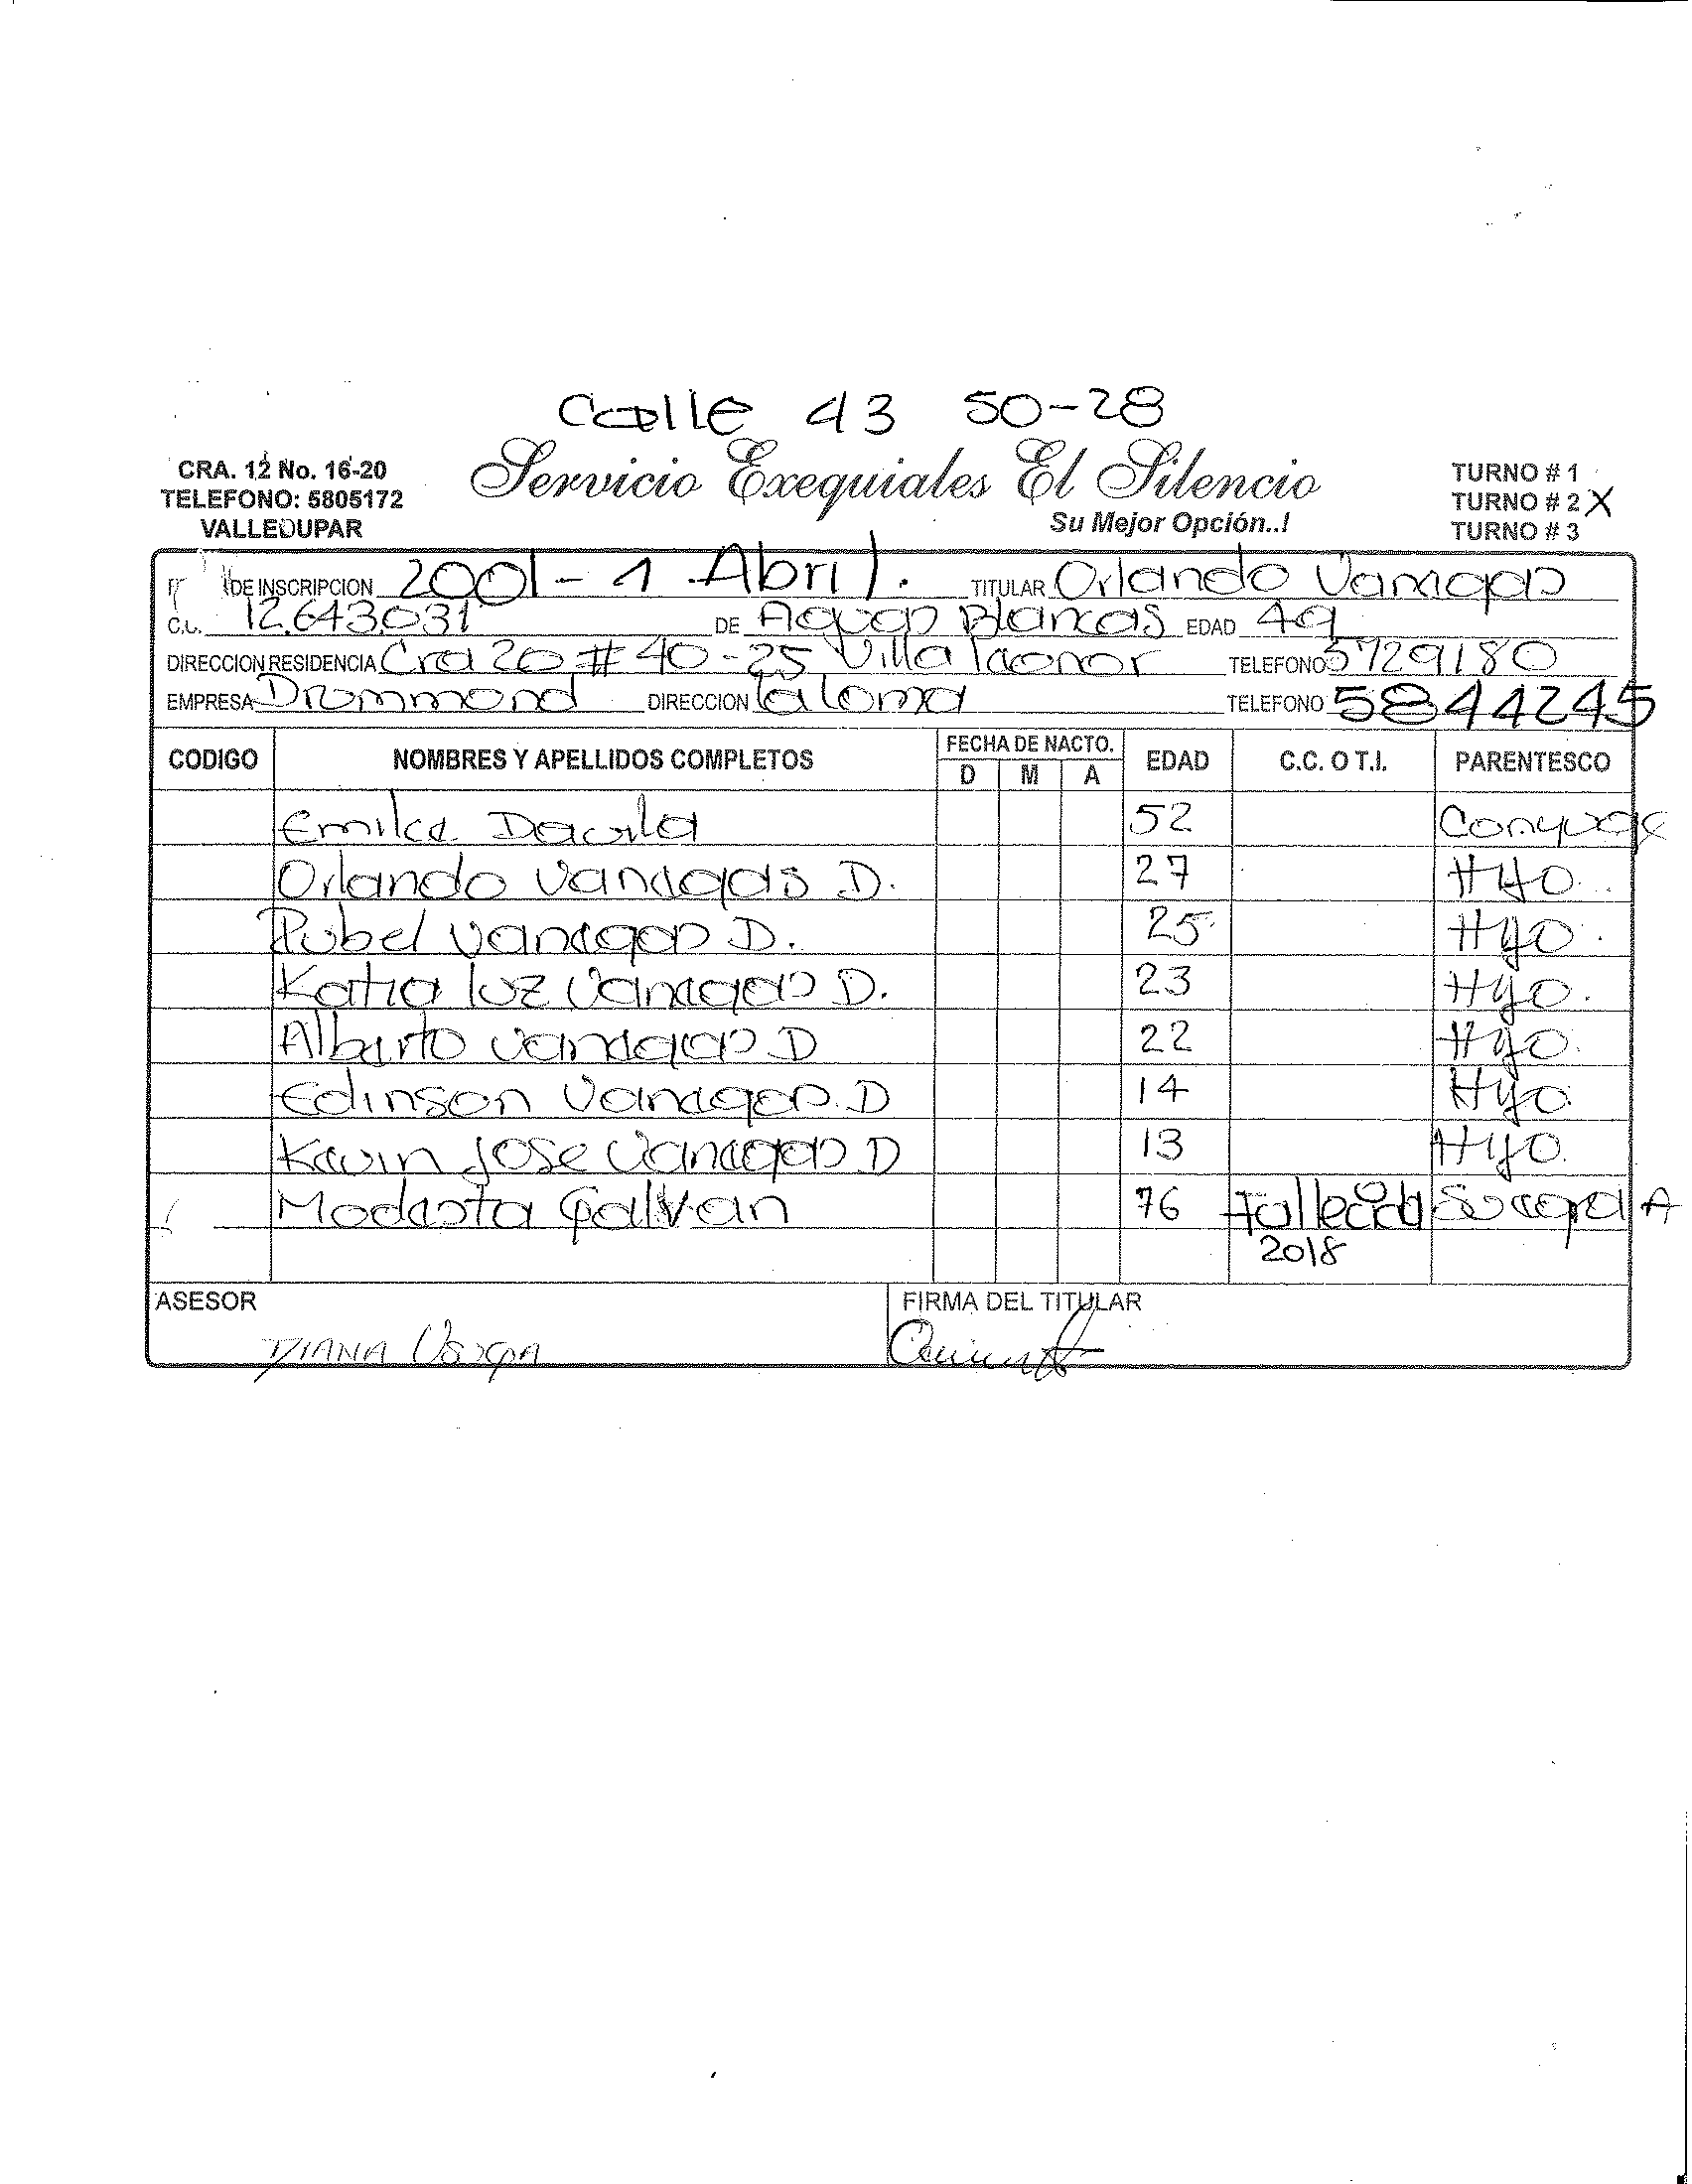 Calle 43 50-28
CRA. 12 No. 16-20
TELEFONO: 5805172
VALLEDUPAR
Servicio Exequiales El Silencio
Su Mejor Opción..!
TURNO # 1
TURNO # 2 X
TURNO # 3
DE INSCRIPCION 2001 - 1 Abril. TITULAR Orlando Vanegas
C.C. 12.643.031 DE Aguas Blancas EDAD 49
DIRECCION RESIDENCIA Cra 20 # 40-25 Villa Leonor TELEFONO 5729180
EMPRESA Drummond DIRECCION La Loma TELEFONO 5844245
CODIGO NOMBRES Y APELLIDOS COMPLETOS FECHA DE NACTO. D M A EDAD C.C. O T.I. PARENTESCO
Emilce Davila 52 Conyuge
Orlando Vanegas D. 27 Hijo.
Rubel Vanegas D. 25 Hijo.
Katia luz Vanegas D. 23 Hijo.
Alberto Vanegas D 22 Hijo.
Edinson Vanegas D 14 Hijo.
Kevin Jose Vanegas D 13 Hijo.
Modesta Galvan 76 Fallecida Suegra
2018
ASESOR FIRMA DEL TITULAR
DIANA